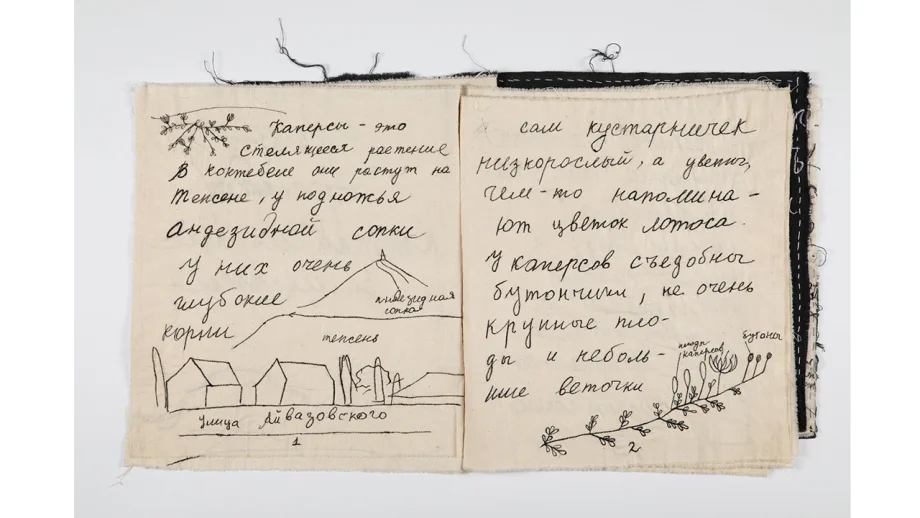 Каперсы - это
стелящееся растение
В Коктебеле они растут на
Тепсене, у подножья
андезидной сопки
У них очень
глубокие
корни
андезидная
сопка
тепсень
Улица Айвазовского
1
сам кустарничек
низкорослый, а цветы,
чем-то напомина-
ют цветок лотоса.
У каперсов съедобны
бутончики, не очень
крупные пло-
ды и неболь-
шие веточки
плоды
каперсов
бутоны
2